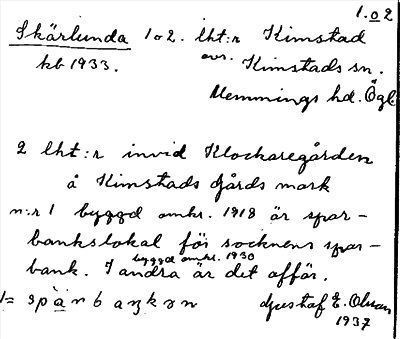 1. o 2
Skärlunda 1 o 2. lht:r Kimstad
kb 1933. avs. Kimstads sn.
Memmings hd. Ögl.
2 lht:r invid Klockaregården
å Kimstads Gårds mark
n:r 1 byggd omkr. 1918 är spar-
bankslokal för socknens spar-
byggd omkr. 1930
bank. I andra är det affär.
Gustaf E. Olsson
1937